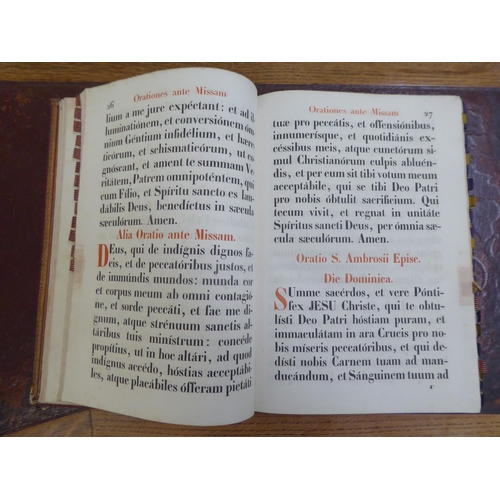 26 Orationes ante Missam
lium a me jure expéctant: et ad il
luminatiónem, et conversiónem óm
nium Géntium infidélium, et hære
ticórum, et schismaticórum, ut co
gnóscant, et ament te summam Ve
ritátem, Patrem omnipoténtem, qui
cum Filio, et Spíritu sancto es lau
dábilis Deus, benedíctus in sæcula
sæculórum. Amen.
Alia Oratio ante Missam.
DEus, qui de indígnis dignos fa
cis, et de peccatóribus justos, et
de immúndis mundos: munda cor
et corpus meum ab omni contagió
ne, et sorde peccáti, et fac me di
gnum, atque strénuum sanctis al
táribus tuis minístrum: concéde
propítius, ut in hoc altári, ad quod
indígnus accédo, hóstias acceptábi
les, atque placábiles ófferam pietáti
Orationes ante Missam 27
tuæ pro peccátis, et offensiónibus,
innumerísque, et quotidiánis ex
céssibus meis, atque cunctórum si
mul Christianórum culpis abluén
dis, et per eum sit tibi votum meum
acceptábile, qui se tibi Deo Patri
pro nobis óbtulit sacrifícium. Qui
tecum vivit, et regnat in unitáte
Spíritus sancti Deus, per ómnia sæ
cula sæculórum. Amen.
Oratio S. Ambrosii Episc.
Die Dominica.
SUmme sacérdos, et vere Pónti
fex JESU Christe, qui te obtu
lísti Deo Patri hóstiam puram, et
immaculátam in ara Crucis pro no
bis míseris peccatóribus, et qui de
dísti nobis Carnem tuam ad man
ducándum, et Sánguinem tuum ad